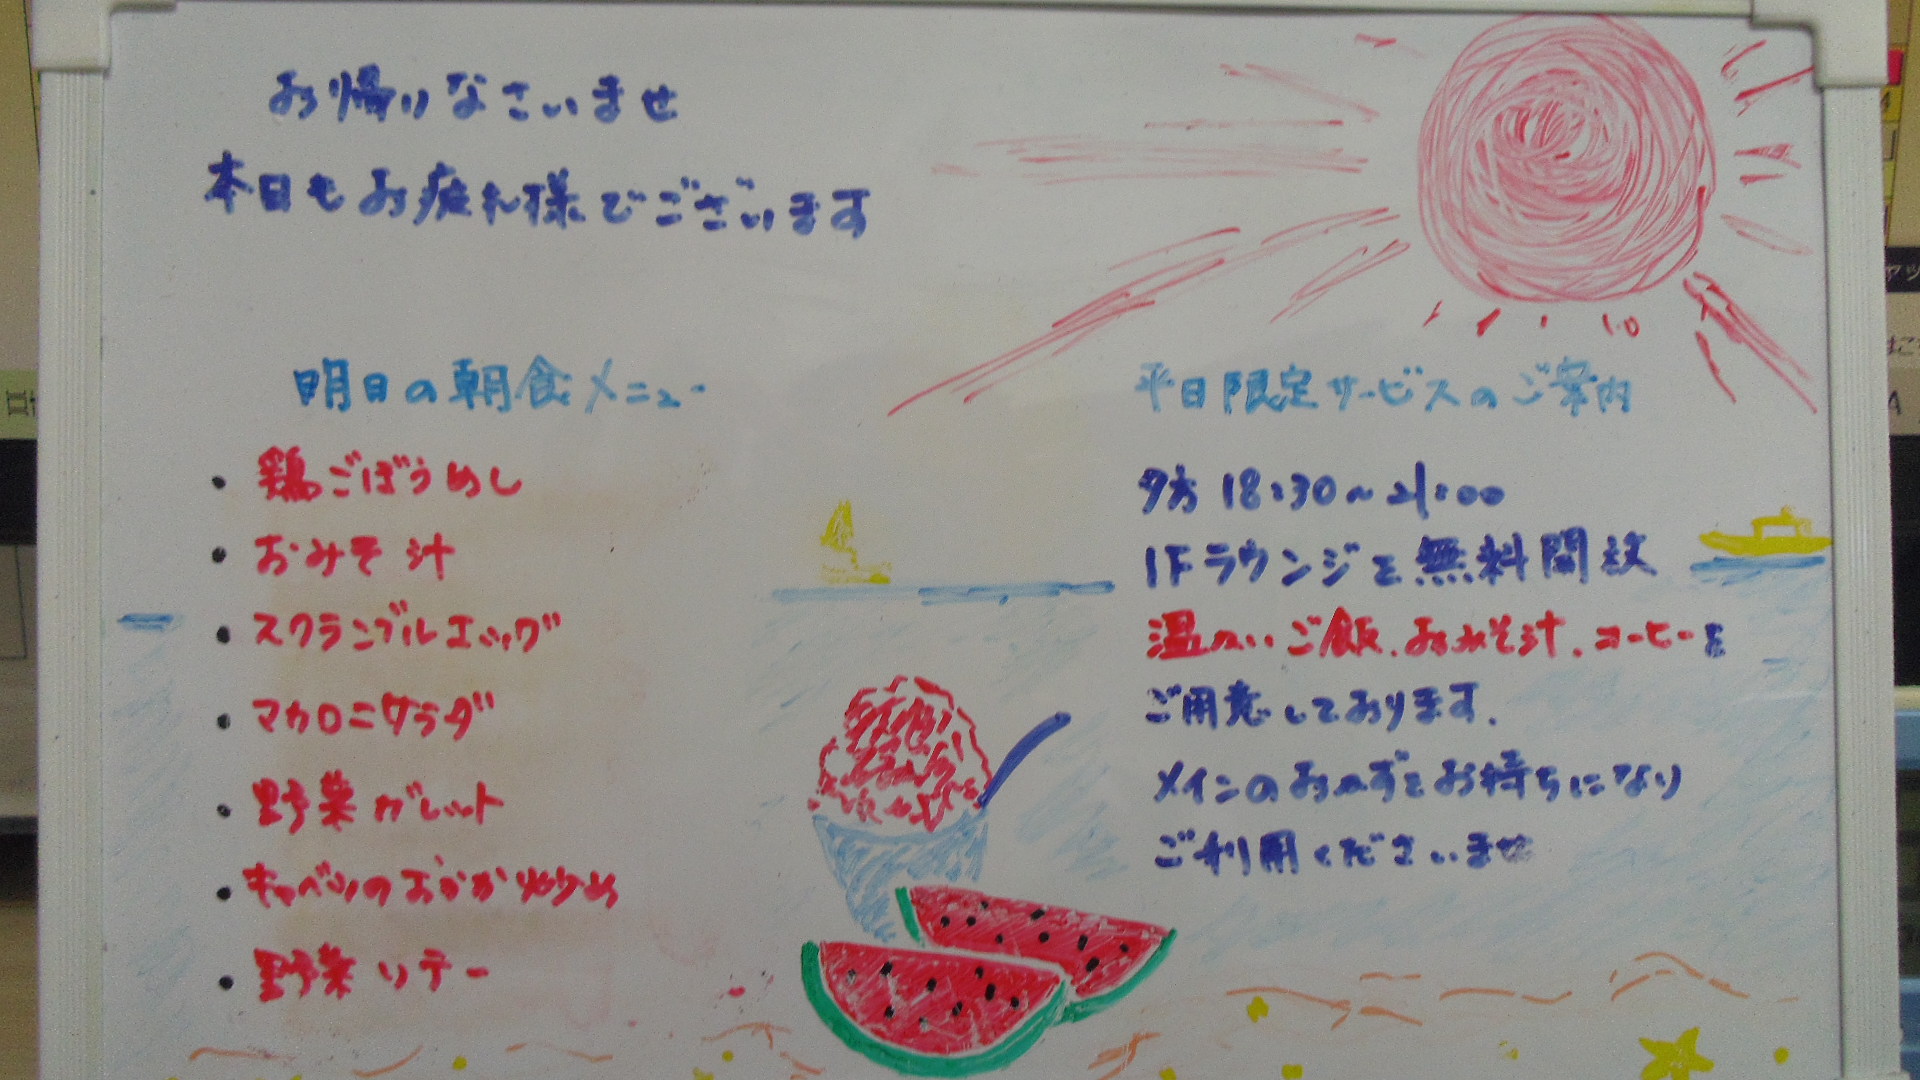 お帰りなさいませ
本日もお疲れ様でございます
明日の朝食メニュー
・鶏ごぼうめし
・おみそ汁
・スクランブルエッグ
・マカロニサラダ
・野菜ガレット
・キャベツのおかか炒め
・野菜ソテー
平日限定サービスのご案内
夕方 18:30~21:00
1Fラウンジを無料開放
温かいご飯、おみそ汁、コーヒーを
ご用意しております.
メインのおかずをお持ちになり
ご利用くださいませ